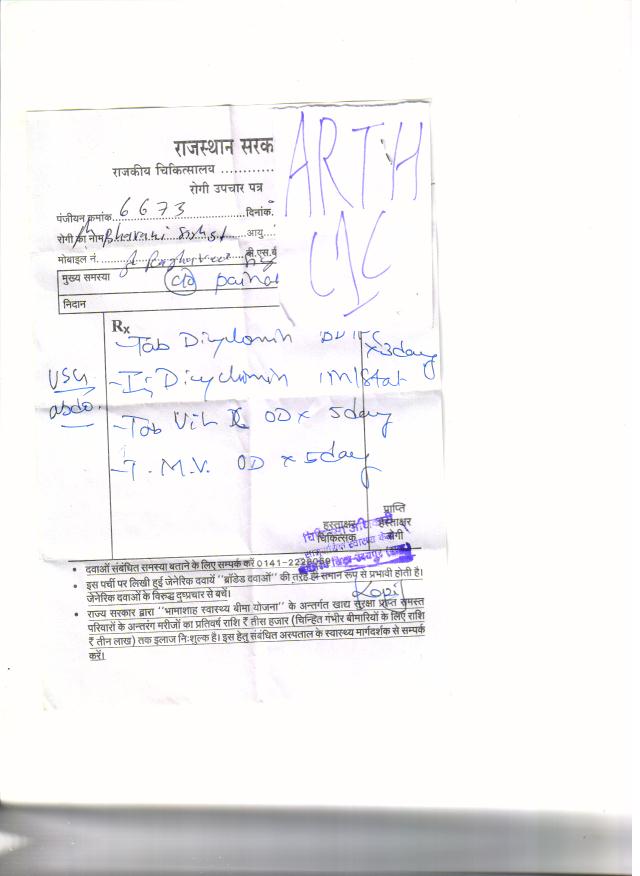 राजस्थान सरक
राजकीय चिकित्सालय ............
रोगी उपचार पत्र
ARTH
पंजीयन क्रमांक 6673 ............दिनांक.
रोगी का नाम Bhavani Singh ........आयु....
मोबाइल नं. ........... बी.एस.ब
मुख्य समस्या c/o pain
निदान
Rx
Tab Dicyclomin BD x 3day
USG
abdo.
- Inj Dicyclomin IM/Stat
- Tab Vit C OD x 5day
- T. M.V. OD x 5day
हस्ताक्षर
चिकित्सक
प्राप्ति
हस्ताक्षर
रोगी
• दवाओं संबंधित समस्या बताने के लिए सम्पर्क करें 0141-2228
• इस पर्ची पर लिखी हुई जेनेरिक दवायें "ब्रांडेड दवाओं" की तरह ही समान रूप से प्रभावी होती है।
जेनेरिक दवाओं के विरुद्ध दुष्प्रचार से बचें।
Kapil
• राज्य सरकार द्वारा "भामाशाह स्वास्थ्य बीमा योजना" के अन्तर्गत खाद्य सुरक्षा प्राप्त समस्त
परिवारों के अन्तरंग मरीजों का प्रतिवर्ष राशि ₹ तीस हजार (चिन्हित गंभीर बीमारियों के लिए राशि
₹ तीन लाख) तक इलाज निःशुल्क है। इस हेतु संबंधित अस्पताल के स्वास्थ्य मार्गदर्शक से सम्पर्क
करें।